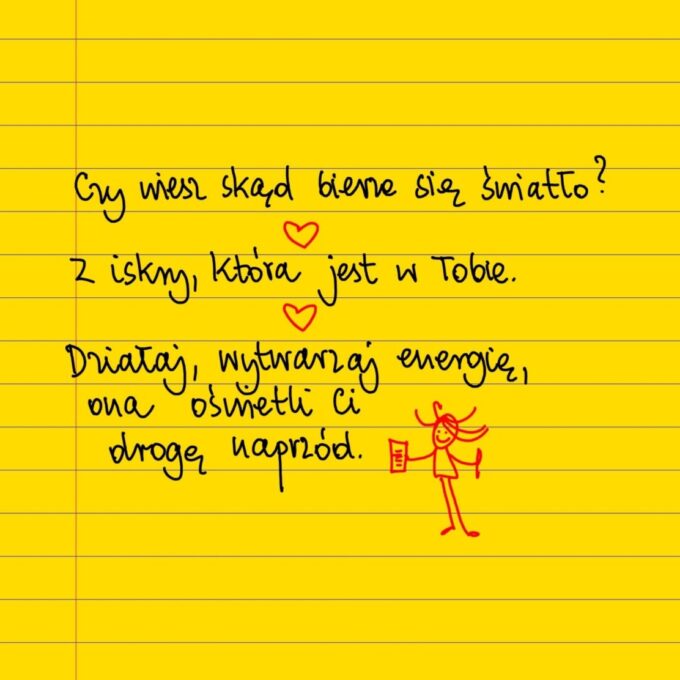 Czy wiesz skąd bierze się światło?
Z iskry, która jest w Tobie.
Działaj, wytwarzaj energię,
ona oświetli Ci
drogę naprzód.